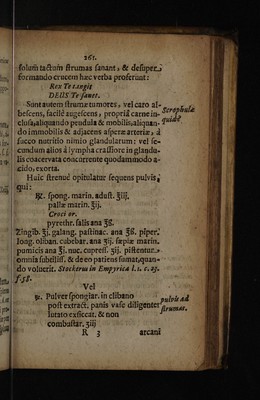 261.
solum tactum strumas sanant, & desuper
formando crucem hæc verba proferunt:
Rex Te tangit
DEUS Te sanet.
Sunt autem strumæ tumores, vel caro al-
bescens, facilè augescens, propriâ carne in-
clusa, aliquando pendula & mobilis, aliquan-
do immobilis & adjacens asperæ arteriæ, à
succo nutritio nimio glandularum: vel se-
cundum alios à lympha crassiore in glandu-
lis coacervata concorrente quodammodo a-
cido, exorta.
Scrophulæ
quid?
Huic strenuè opitulatur sequens pulvis,
qui:
℞. spong. marin. adust. ʒiij.
pallæ marin. ʒij.
Croci or.
pyrethr. salis ana ʒß.
Zingib. ʒj. galang. pastinac. ana ʒß. piper.
long. oliban. cubebar. ana ʒij. sæpiæ marin.
pumicis ana ʒj. nuc. cupress. ʒij. pistentur
omnia subtiliss. & de eo patiens sumat, quan-
do voluerit. Stockerus in Empyrica l. 1. c. 25.
f. 58.
Vel
℞. Pulver spongiar. in clibano
post extract. panis vase diligenter
lutato exsiccat. & non
combustar. ʒiij
pulvis ad
strumas.
R 3
arcani